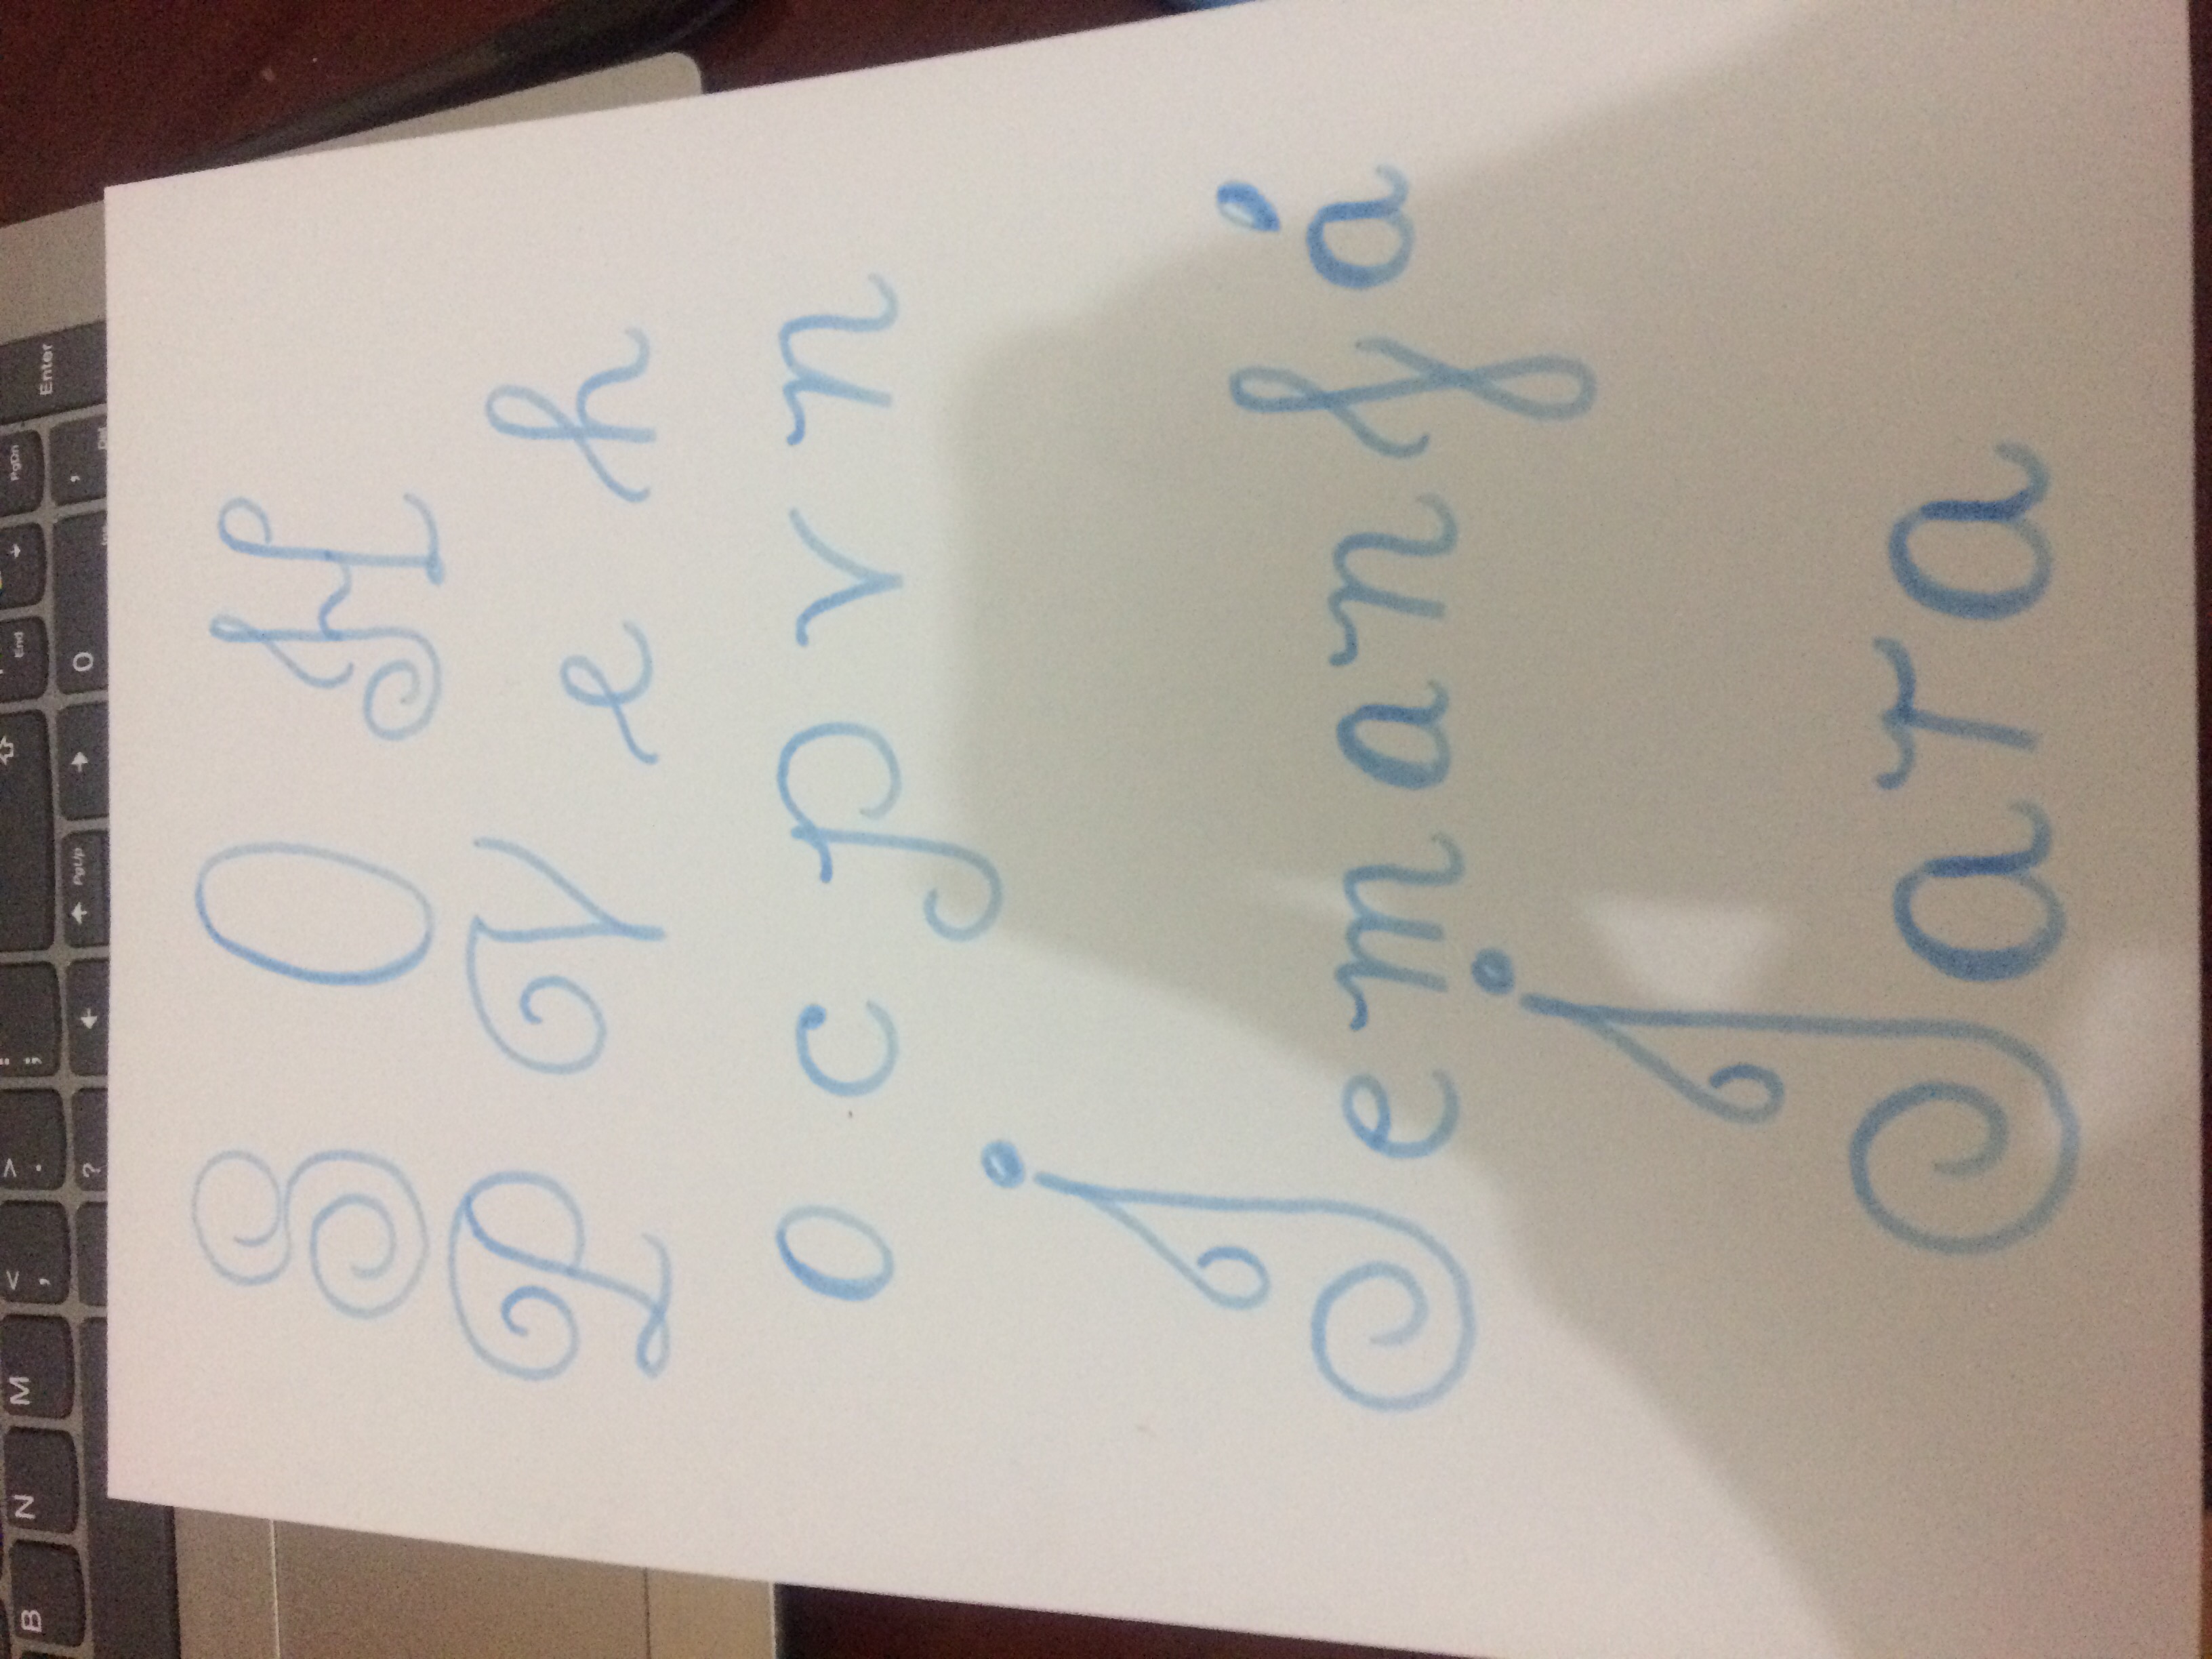 B N M < , > . : ; End PgDn Enter
? PgUp 0 , Ins Del
S O H
P V e h
o c p v n
Iemanjá
Iara